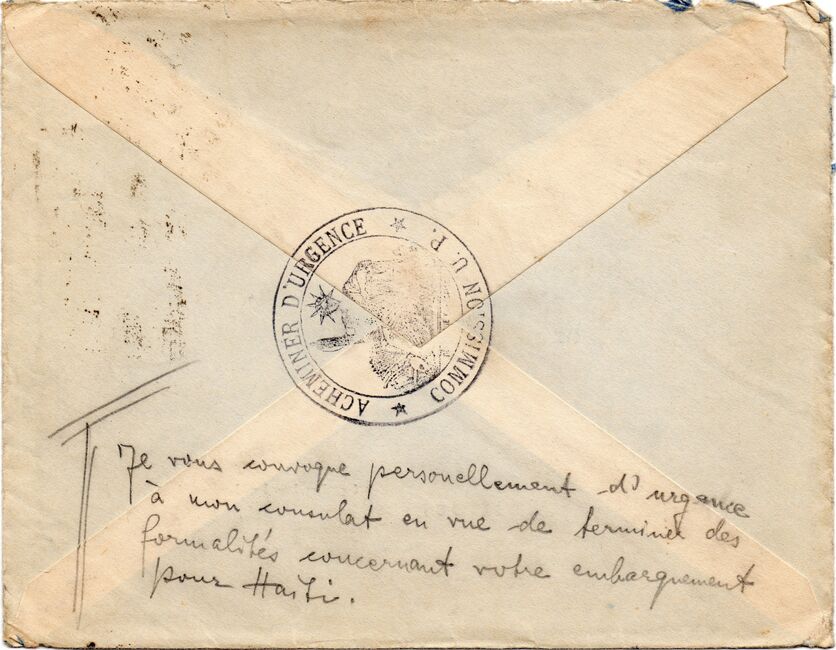 ACHEMINER D'URGENCE ★ COMMISSION U. P. ★
Je vous convoque personellement d'urgence
à mon consulat en vue de terminer des
formalités concernant votre embarquement
pour Haïti.